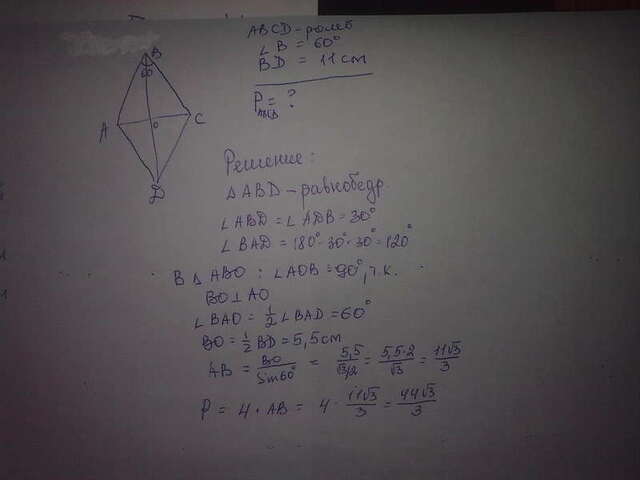 ABCD - ромб
∠ B = 60°
BD = 11 см
P ABCD = ?
B
60
A
O
C
D
Решение:
△ ABD - равнобедр.
∠ ABD = ∠ ADB = 30°
∠ BAD = 180° - 30° - 30° = 120°
В △ ABO : ∠ AOB = 90°, т.к.
BO ⊥ AO
∠ BAO = 1/2 ∠ BAD = 60°
BO = 1/2 BD = 5,5 см
AB = BO/Sin60° = 5,5/(√3/2) = 5,5·2/√3 = 11√3/3
P = 4 · AB = 4 · 11√3/3 = 44√3/3